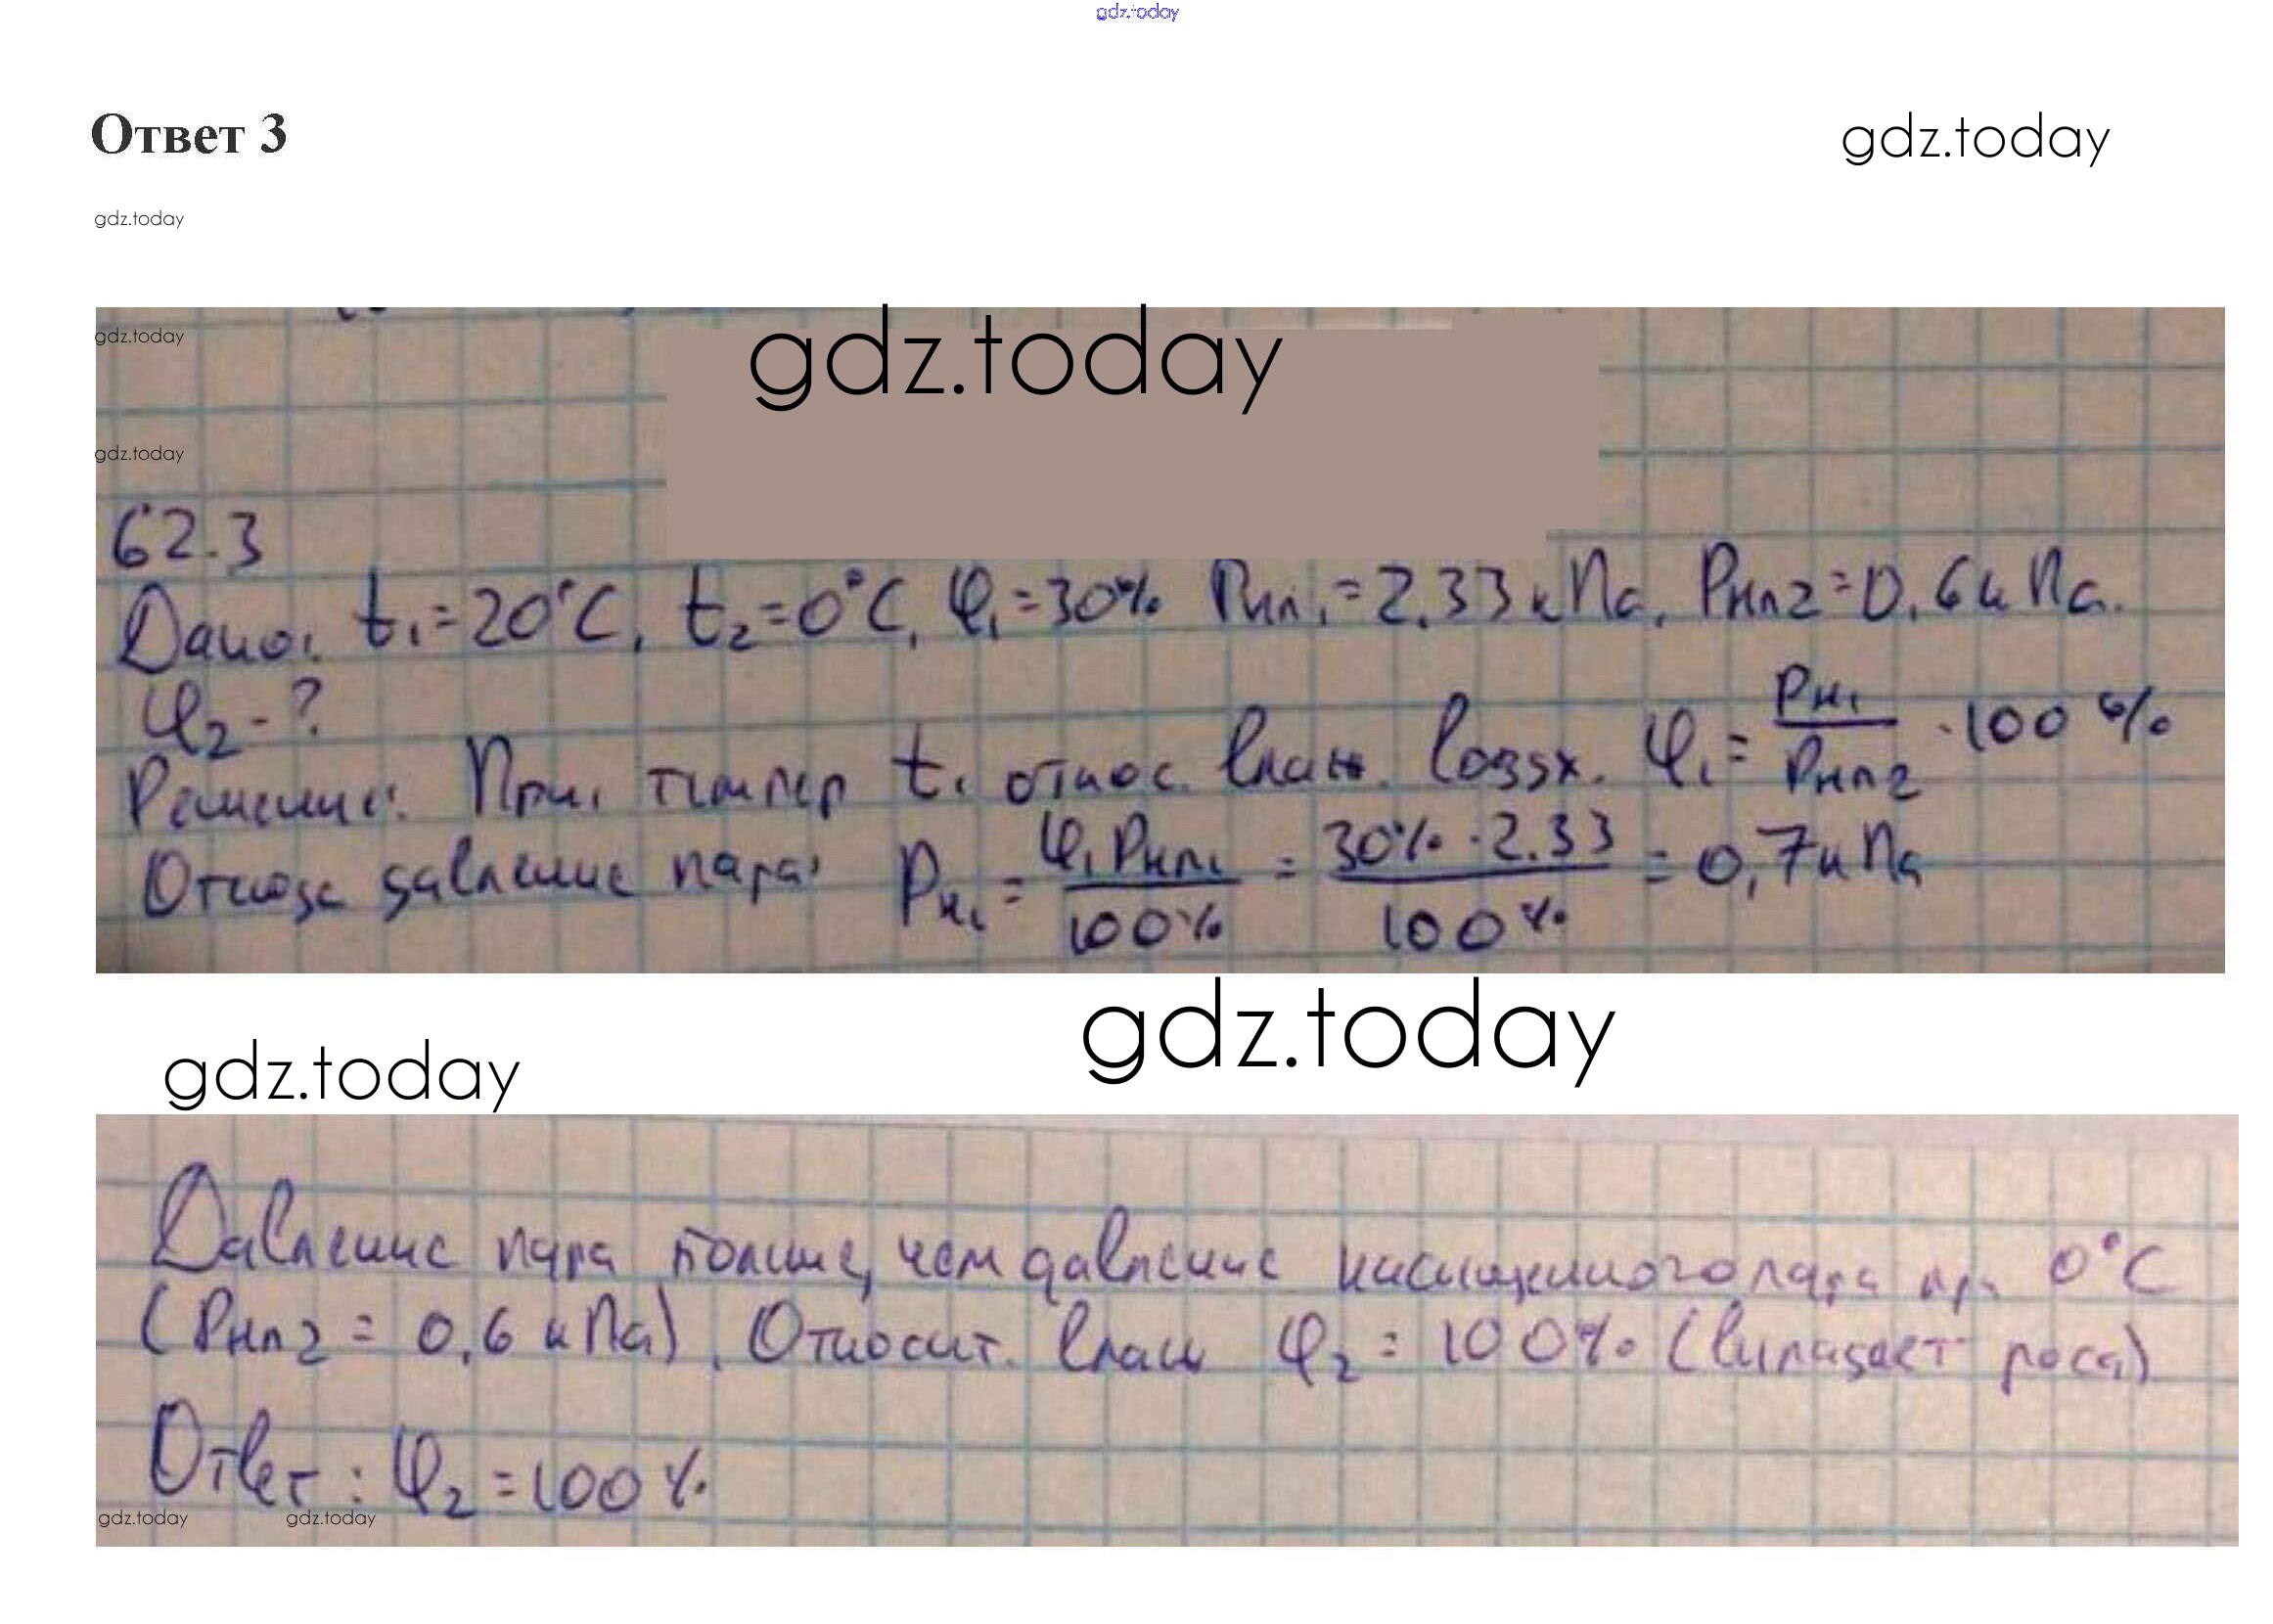 gdz.today
Ответ 3
gdz.today
gdz.today
gdz.today
gdz.today
gdz.today
62.3
Дано: t₁=20°C, t₂=0°C, φ₁=30% Pнп₁=2.33 кПа, Pнп2=0,6 кПа.
φ₂-?
Решение: При, темпер t₁ относ. влаж. возд. φ₁= Pн₁/Pнп2 ·100%
Отсюда давление пара: Pн₁ = φ₁Pнп₁/100% = 30%·2.33/100% = 0,7кПа
gdz.today
gdz.today
Давление пара больше, чем давление насыщенного пара при 0°C
(Pнп2 = 0,6 кПа). Относит. влаж φ₂ = 100% (выпадает роса)
Ответ: φ₂=100%
gdz.today
gdz.today